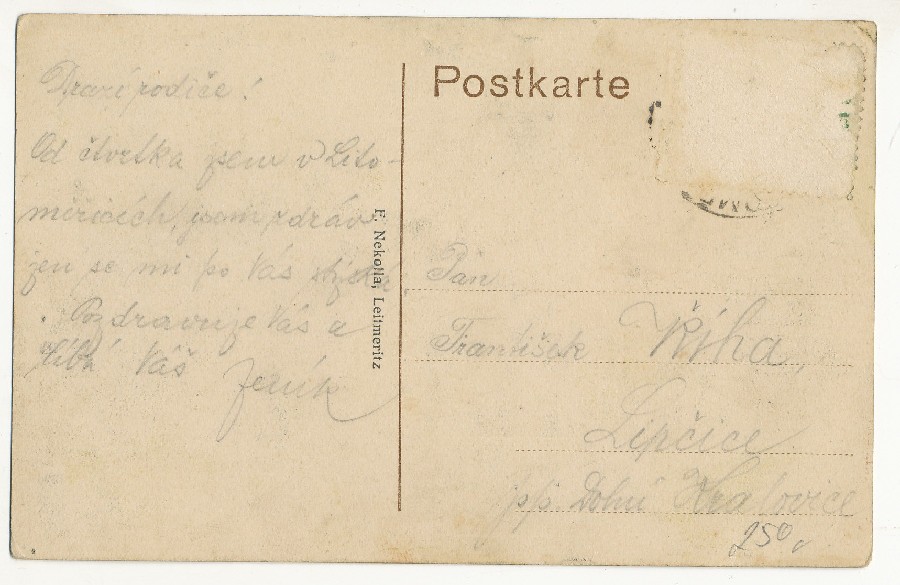 Drazí rodiče!
Od čtvrtka jsem v Lito-
měřicích, jsem zdráv
jen se mi po Vás stýská
. Pozdravuje Vás a
líbá Váš Jeník
F. Nekolla, Leitmeritz
Postkarte
Pan
František Říha,
Lipčice
p/p. Dolní Kralovice
250,